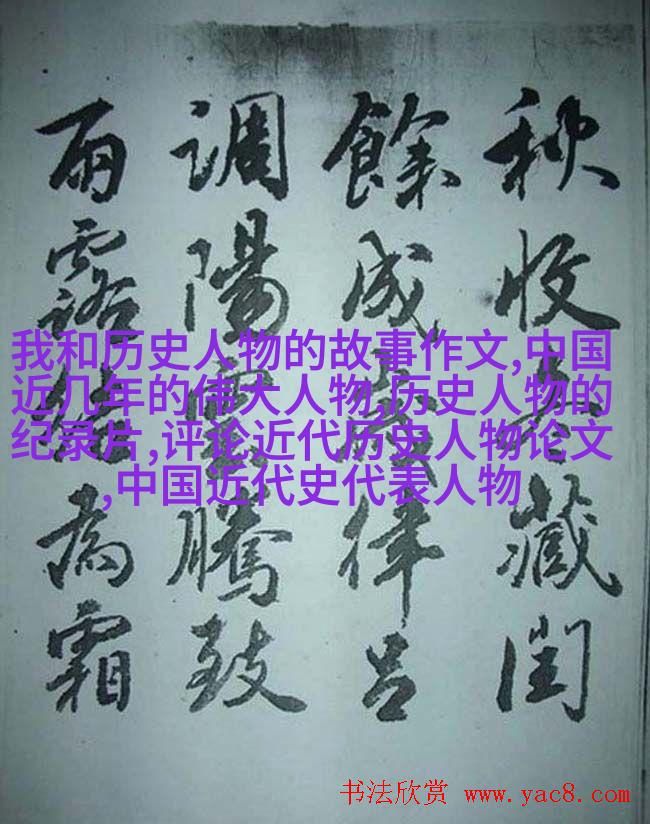 秋收冬藏閏
餘成歲律呂
調陽雲騰致
雨露結為霜
我和历史人物的故事作文,中国
近几年的伟大人物,历史人物的
纪录片,评论近代历史人物论文
,中国近代史代表人物
书法欣赏 www.yac8.com